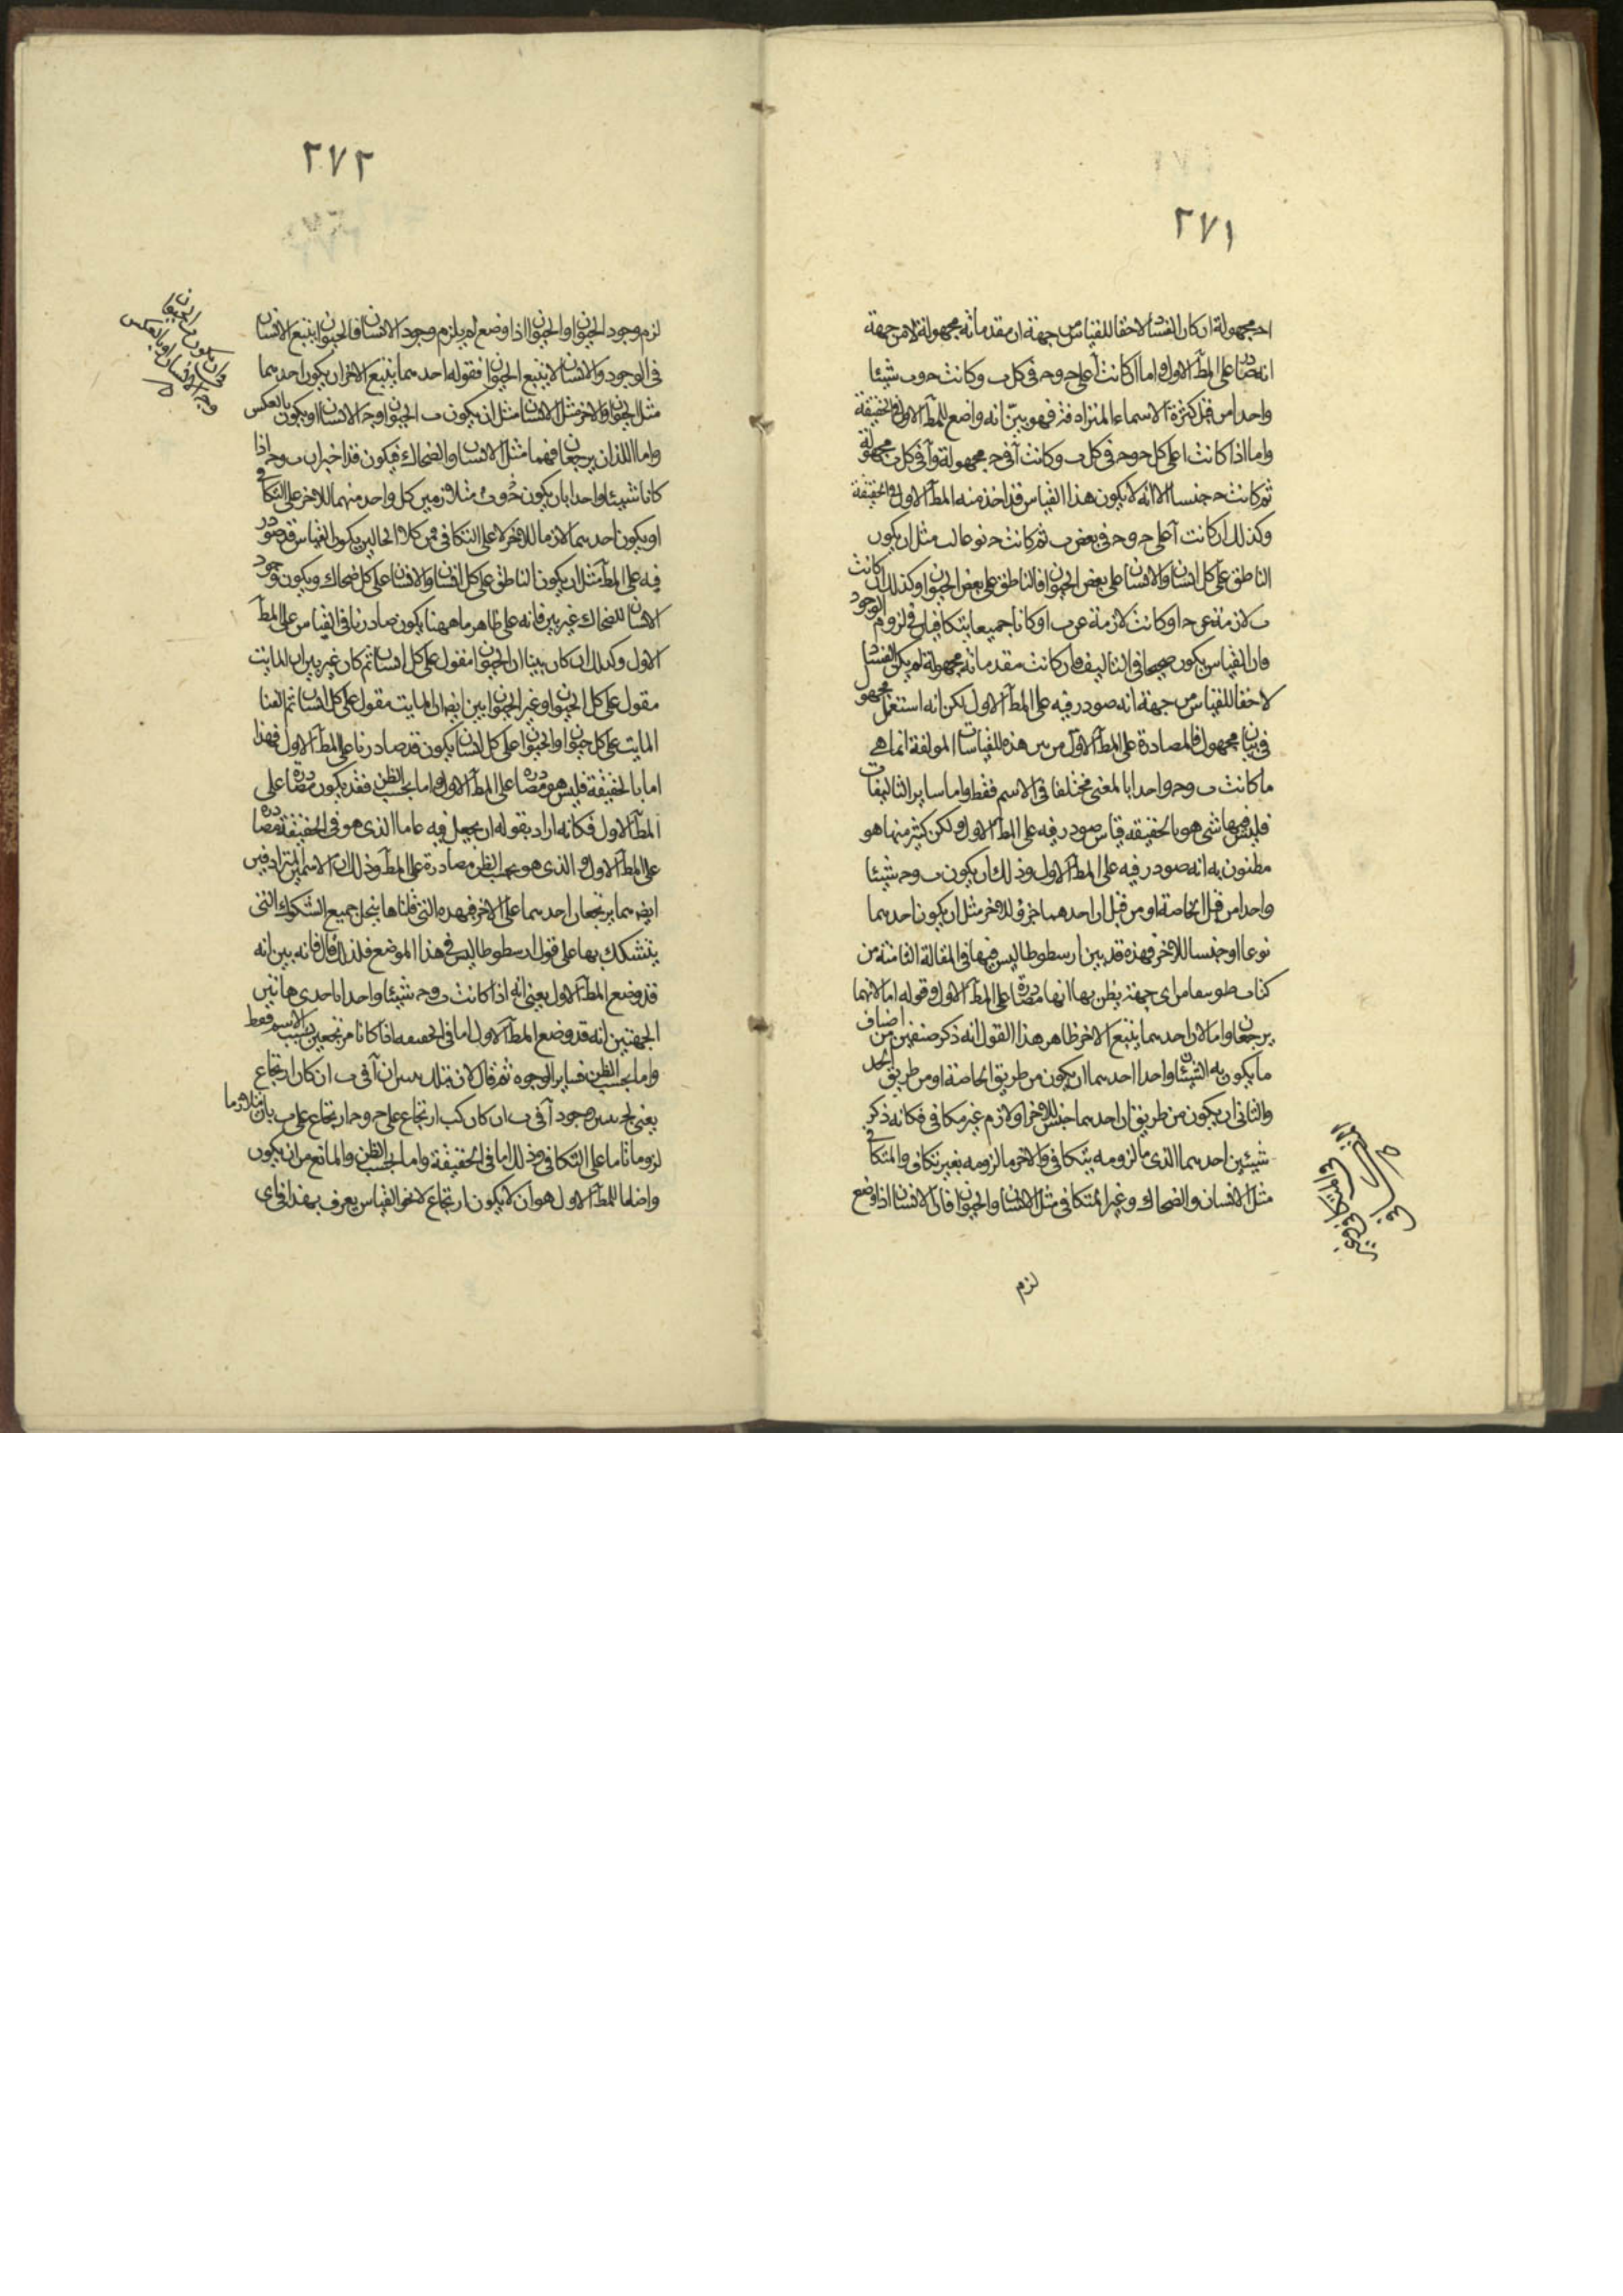 ٢٧١
احـ مجهولة ان كان الفساد لاحقا للقياس من جهة ان مقدماته مجهولة لا من جهة
انه مصادر على المطـ الاول واما ان كانت آ على حـ وحـ فى كل ب وكانت حـ وب شيئا
واحدا من قبل كثرة الاسماء المترادفة فهو بيّن انه واضع للمطـ الاول بالحقيقة
واما اذا كانت ا على كل حـ وحـ فى كل ب وكانت آ فى حـ مجهولة وآ فى كل ب مجهولة
ثم كانت حـ جنسا الا انه لا يكون هذا القياس قد اخذ منه المطـ الاول بالحقيقة
وكذلك ان كانت آ على حـ وحـ فى بعض ب ثم كانت حـ نوعا لب مثل ان يكون
الناطق على كل انسان والانسان على بعض الحيوان فالناطق على بعض الحيوان وكذلك ان كانت
ب لازمة عن حـ او كانت لازمة عن ب او كانا جميعا يتكافيان فى لزوم الوجود
فان القياس يكون صحيحا فى التاليف فان كانت مقدماته مجهولة لم يكن الفساد
لاحقا للقياس من جهة انه صودر فيه على المطـ الاول لكن انه استعمل مجهول
فى بيان مجهول فالمصادرة على المطـ الاول من بين هذه المقياسات المولفة انما هى
ما كانت ب وحـ واحدا بالمعنى مختلفا فى الاسم فقط واما ساير التاليفات
فليس فيها شى هو بالحقيقه قياس صودر فيه على المطـ الاول ولكن كثير منها هو
مظنون به انه صودر فيه على المطـ الاول وذلك ان يكون ب وحـ شيئا
واحدا من قبل الخاصة او من قبل ان احدهما جزؤ للاخر مثل ان يكون احدهما
نوعا او جنسا للاخر فهذه قد بين ارسطوطاليس فيها فى المقالة الثامنة من
كتاب طوبيقا من اى جهة يظن بها انها مصادرة على المطـ الاول وقوله اما لانهما
يرجعان واما لان احدهما يتبع الاخر ظاهر هذا القول انه ذكر صنفين من اصناف
ما يكون به الشيئان واحدا احدهما ان يكون من طريق الخاصة او من طريق الحد
والثانى ان يكون من طريق ان احدهما جنس للاخر او لازم غير مكافى فكانه ذكر
شيئين احدهما الذى ما لزومه بتكافى والاخر ما لزومه بغير تكافى والمتكافى
مثل الانسان والضحاك وغير المتكافى مثل الانسان والحيوان فان الانسان اذا وضع
لزم
٢٧٢
لزم وجود الحيوان والحيوان اذا وضع لم يلزم وجود الانسان فالحيوان يتبع الانسان
فى الوجود والانسان لا يتبع الحيوان فقوله احدهما يتبع الاخر ان يكون احدهما
مثل الحيوان والاخر مثل الانسان مثل ان يكون ب الحيوان وحـ الانسان او يكون بالعكس
واما اللذان يرجعان فهما مثل الانسان والضحاك فيكون قد اخبر ان ب وحـ اذا
كانا شيئا واحدا بان يكون حـ وب متلازمين كل واحد منهما للاخر على التكافى
او يكون احدهما لازما للاخر لا على التكافى فمن كلا الحالين يكون القياس قد صودر
فيه على المطـ مثل ان يكون الناطق على كل انسان والانسان على كل ضحاك ويكون وجود
الانسان للضحاك غير بين فانه على ظاهر ما ههنا يكون صادرنا فى القياس على المطـ
الاول وكذلك ان كان بينا ان الحيوان مقول على كل انسان ثم كان غير بين ان المايت
مقول على كل الحيوان وغير الحيوان بين ايضا ان المايت مقول على كل انسان ثم الفنا
المايت على كل حيوان والحيوان على كل انسان يكون قد صادرنا على المطـ الاول فهذا
اما بالحقيقة فليس هو مصادرة على المطـ الاول واما بحسب الظن فقد يكون مصادرة على
المطـ الاول فكانه اراد بقوله ان يجعل فيه عاما الذى هو فى الحقيقة مصادرة
على المطـ الاول والذى هو بحسب الظن مصادرة على المطـ وذلك ان الاسمين المترادفين
ايضا هما يرتجعان احدهما على الاخر فهذه التى قلناها ينحل جميع الشكوك التى
يتشكك بها على قول ارسطوطاليس فى هذا الموضع فلذلك قال فانه بين انه
قد وضع المطـ الاول يعنى انه اذا كانت ب وحـ شيئا واحدا باحدى هاتين
الجهتين انه قد وضع المطـ الاول اما فى الحقيقه اذا كانا مرتجعين بحسب الاسم فقط
واما بحسب الظن فساير الوجوه ثم قال لان بتلك يبين ان آ فى ب ان كان ارتجاع
يعنى وجود آ فى ب ان كان كب ارتجاع على حـ وحـ ارتجاع على ب بان يتلازما
لزوما تاما على التكافى وذلك اما فى الحقيقة واما بحسب الظن والمانع من ان يكون
واضعا للمطـ الاول هو ان لا يكون ارتجاع لا نحو القياس يعرف بهذا فاى